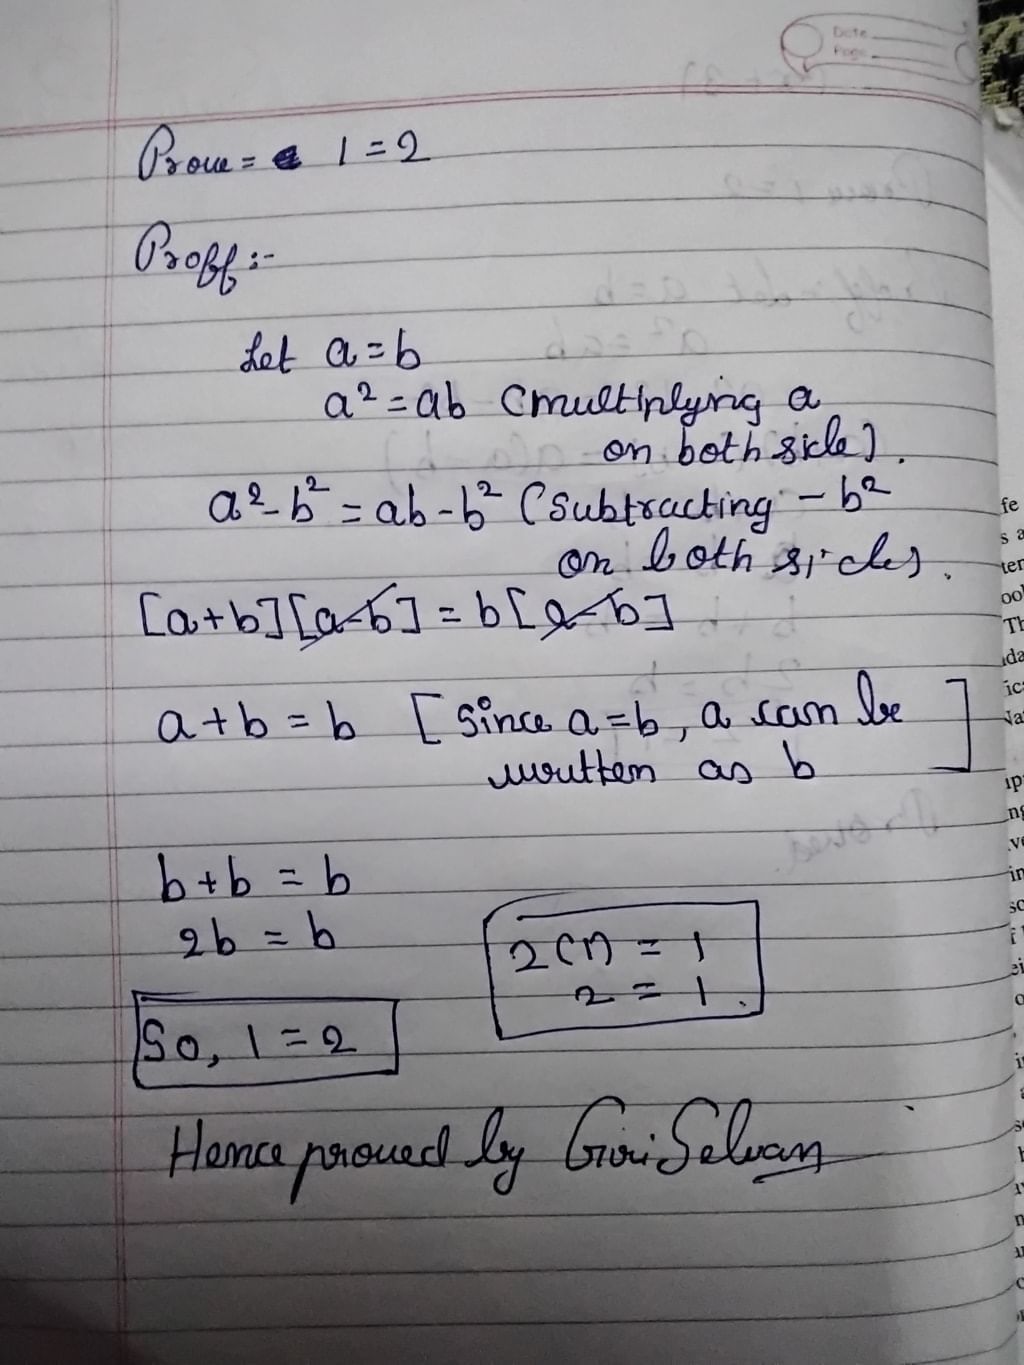 Date
Page
Prove = 1 = 2
Proff :-
Let a = b
a² = ab (multiplying a
on both side).
a² - b² = ab - b² (Subtracting - b²
on both sides.
[a+b][a-b] = b[a-b]
a + b = b [Since a = b, a can be
written as b]
b + b = b
2b = b
2(1) = 1
2 = 1.
So, 1 = 2
Hence proved by Giri Selvan